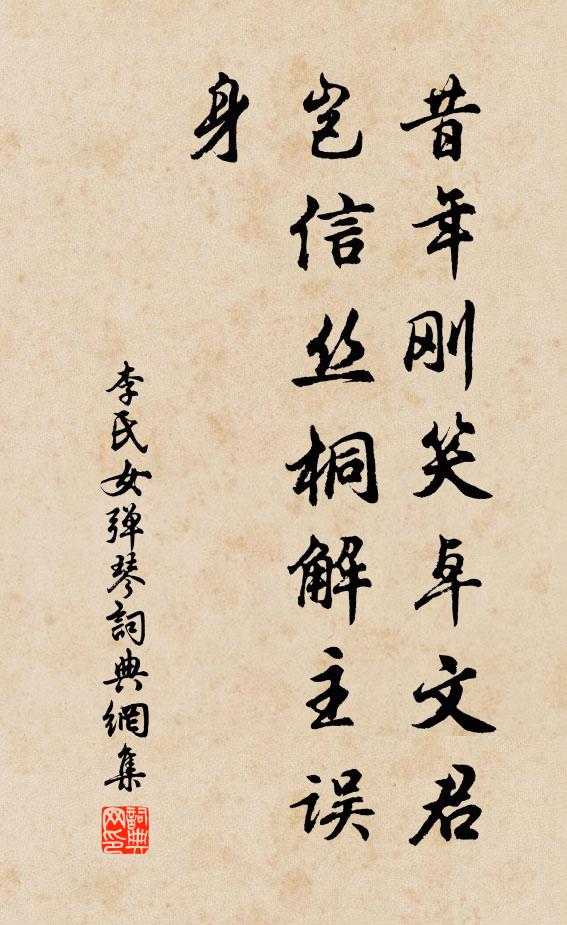 昔年刚笑卓文君
岂信丝桐解主误
身
李氏女弹琴詞典網集
詞典
网印